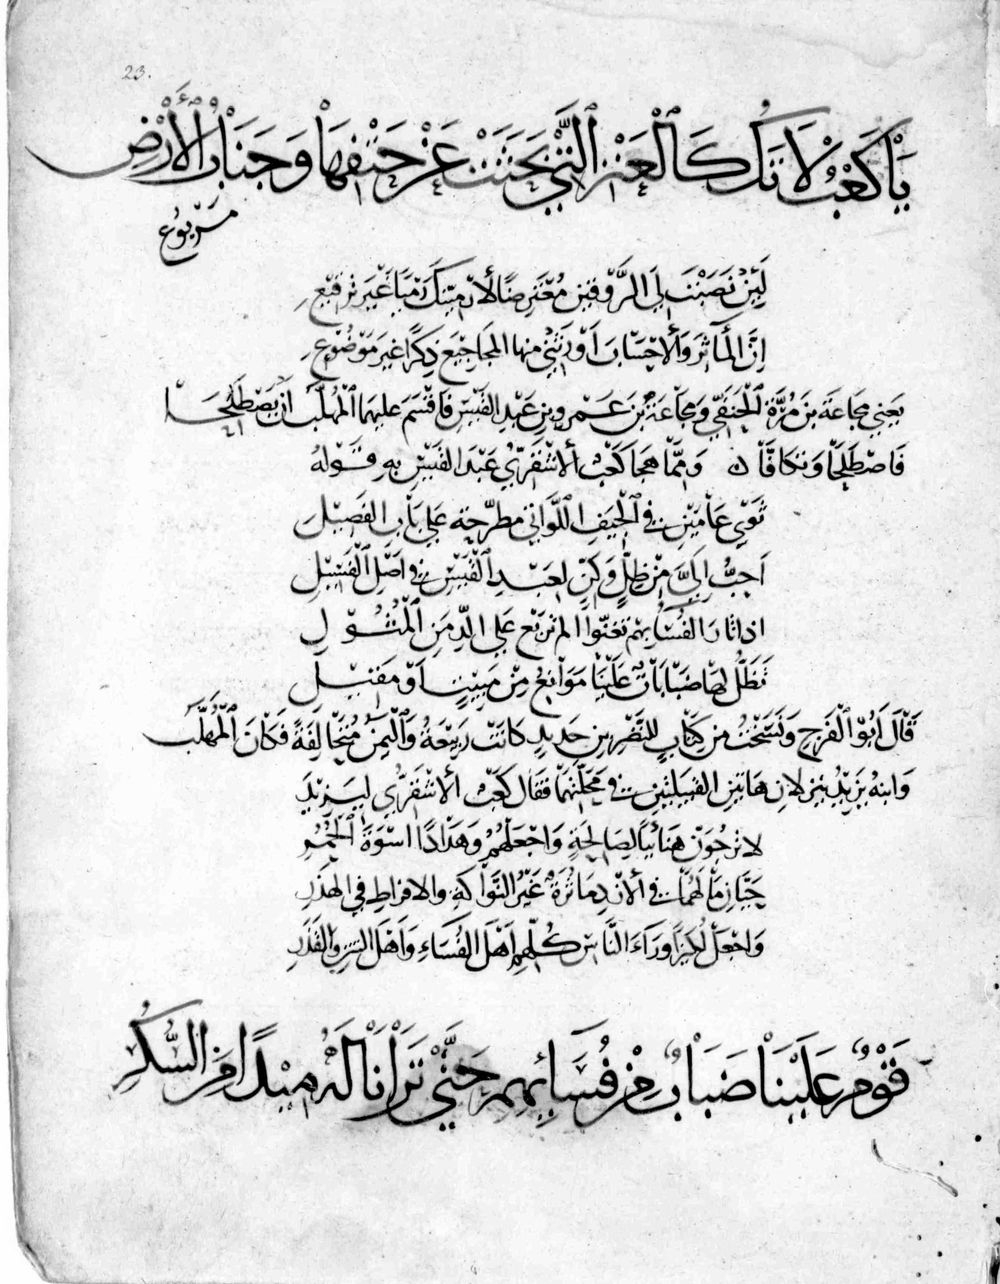 23.
يَا كَعْبُ لَا تَكُ كَالْعَنْزِ الَّتِي بَحَثَتْ عَنْ حَتْفِهَا وَجَنَابُ الْأَرْضِ
مَرْبُوعُ
لَئِنْ نَصَبْتَ لِيَ الرَّوْقَيْنِ مُعْتَرِضًا لَأَرْمِيَنَّكَ رَمْيًا غَيْرَ تَرْفِيعِ
اِنَّ الْمَآثِرَ وَالْاَحْسَابَ اَوْرَثَنِي مِنْهَا الْمَجَاجِيعَ ذِكْرًا غَيْرَ مَوْضُوعِ
يعني مجاعة بن مُرَّة الْحَنَفِي ومجاعة بْن عَمْرو بن عَبْد القَيْس فَاَقْسَمَ عليهما الْمُهَلَّبُ اَنْ يَصْطَلِحَا
فَاصْطَلَحَا وَتَكَافَّا ن وَمِمَّا هَجَا كَعْب الْاَشْقَرِيُّ عَبْدَ القَيْسِ بِهِ قَوْلهُ
ثَوَى عَامَيْنِ فِي الْجِيَفِ اللَّوَاتِي مطرَّحة عَلَى بَابِ الفَصِيْلِ
اَحَبُّ اِلَيَّ مِنْ ظِلٍّ وَكِنٍّ لِعَبْدِ الْقَيْسِ فِي اَصْلِ الْفَسِيْلِ
اذا ثَارَ الفُسَا بِهِم تَغَنَّوا الم تَرْبَع عَلَى الدِّمَنِ الْمُثُوْلِ
تَظَلُّ لَهَا ضَبَابَاتٌ عَلَيْنَا مَوَانِعُ مِنْ مَبِيْتٍ اَوْ مَقِيْلِ
قَالَ اَبُو الْفَرَجِ وَنَسَخْتُ من كِتَابٍ لِلنَّضْرِ بن حَدِيدٍ كَانَتْ رَبِيْعَةُ وَالْيَمَنُ مُتَحَالِفَةً فَكَانَ الْمُهَلَّبُ
وَابنهُ يَزِيْدُ يَنزلانِ هَاتين القبيلتين فِي مَحَلَّتِهِمَا فَقَالَ كَعْبُ الْاَشْقَرِيُّ لِيَزِيْدَ
لا تَرْجُوَنّ هُنَائِيًّا لِصَالِحَةٍ وَاجْعَلْهُمْ وَهَدَادًا اُسْوَةَ الْحُمُرِ
حَيَّانِ مَا لَهُمَا فِي الْاَزْدِ مَاثُرَةٌ غَيْرُ النَّوَاكَةِ والافراطِ فِي الهَذَرِ
وَاجْعَلْ لُكَيْزًا وَرَاءَ النَّاسِ كُلِّهِم اَهْلَ الفُسَاءِ وَاَهْلَ النَّتنِ وَالقَذَرِ
قَوْمٌ عَلَيْنَا ضَبَابٌ مِنْ فُسَائِهِمِ حَتَّى تَرَانَا لَهُ مَيْدًا مِنَ السُّكْرِ